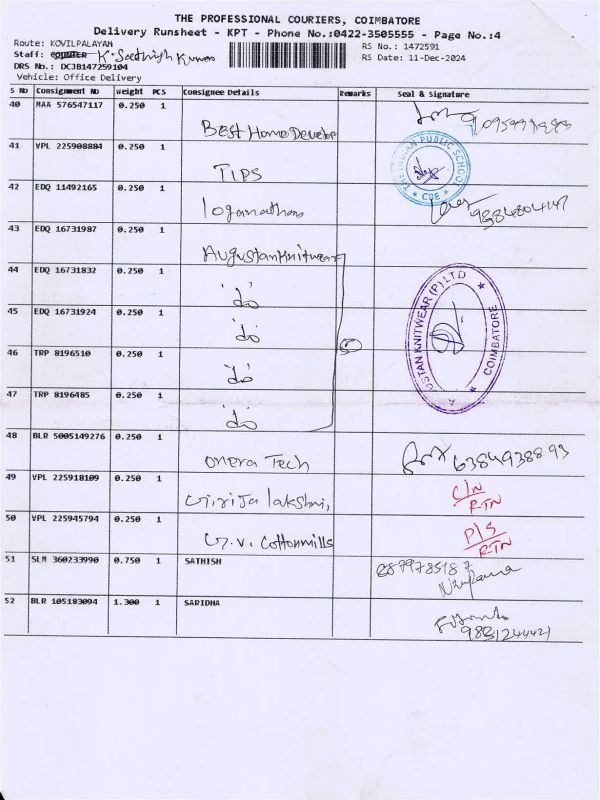 THE PROFESSIONAL COURIERS, COIMBATORE
Delivery Runsheet - KPT - Phone No.:0422-3505555 - Page No.:4
Route: KOVILPALAYAM
RS No.: 1472591
Staff: COUNTER K. Sathish Kumar
RS Date: 11-Dec-2024
DRS No.: DCJB147259104
Vehicle: Office Delivery
S No Consignment No Weight PCS Consignee Details Remarks Seal & Signature
40 MAA 576547117 0.250 1
Best Home Develop
41 VPL 225908884 0.250 1
TIPS
THE INDIAN PUBLIC SCHOOL
* CBE *
42 EDQ 11492165 0.250 1
loganathan
9384804147
43 EDQ 16731987 0.250 1
Augustan Knitwear
44 EDQ 16731832 0.250 1
"do"
45 EDQ 16731924 0.250 1
"do"
KNITWEAR (P) LTD
COIMBATORE
46 TRP 8196510 0.250 1
"do"
5
47 TRP 8196485 0.250 1
"do"
48 BLR 5005149276 0.250 1
onera Tech
6384938893
49 VPL 225918109 0.250 1
Girija lakshmi,
C/N
RTN
50 VPL 225945794 0.250 1
G.V. Cottonmills
P/S
RTN
51 SLM 360233990 0.750 1 SATHISH
52 BLR 105183094 1.300 1 SARIDHA